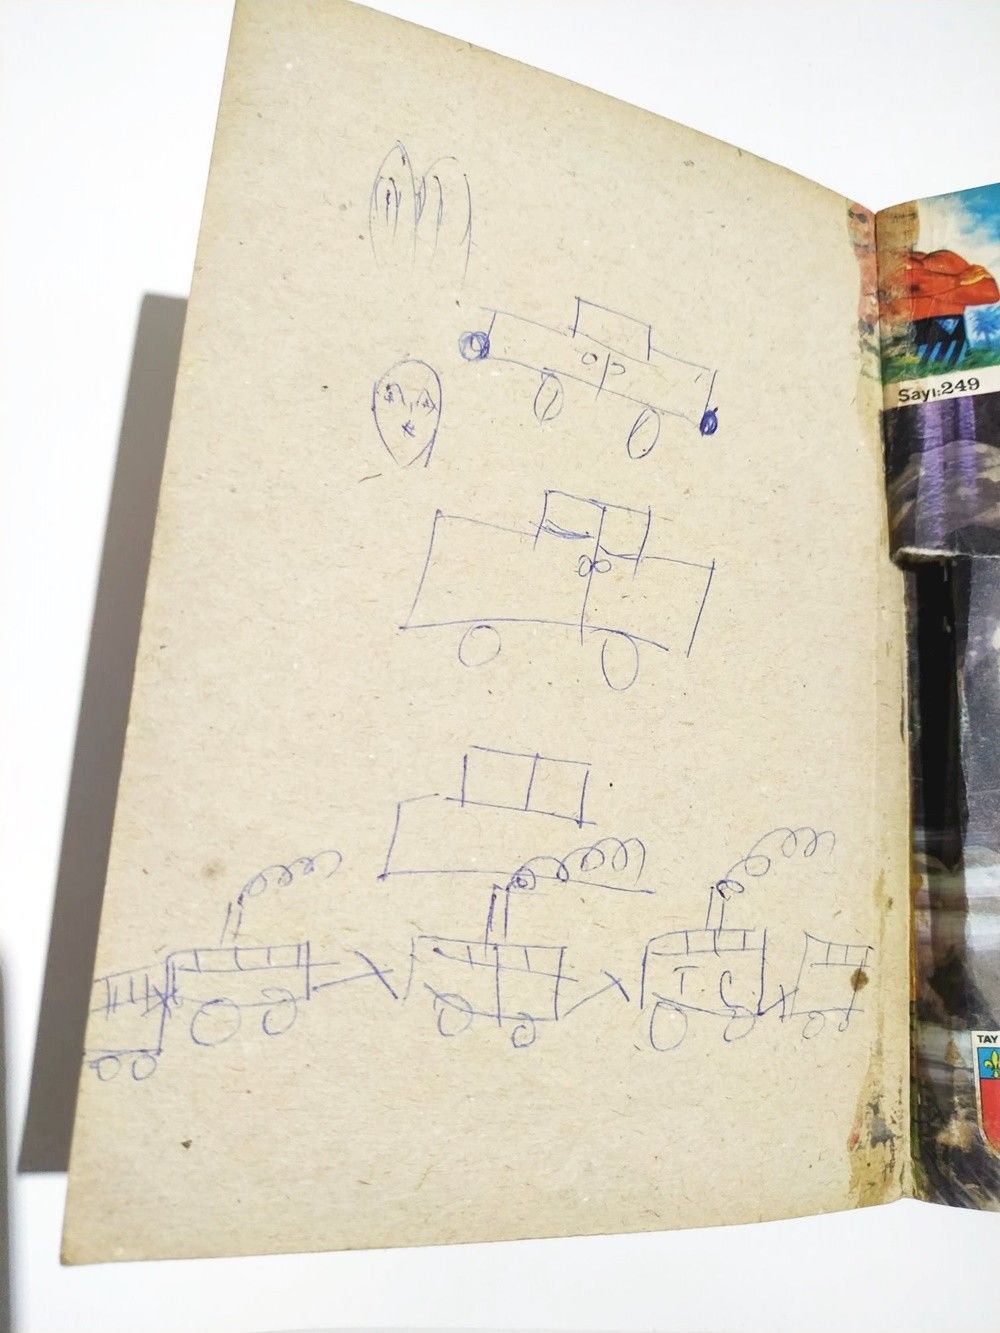 Sayı:249
TAY
T C